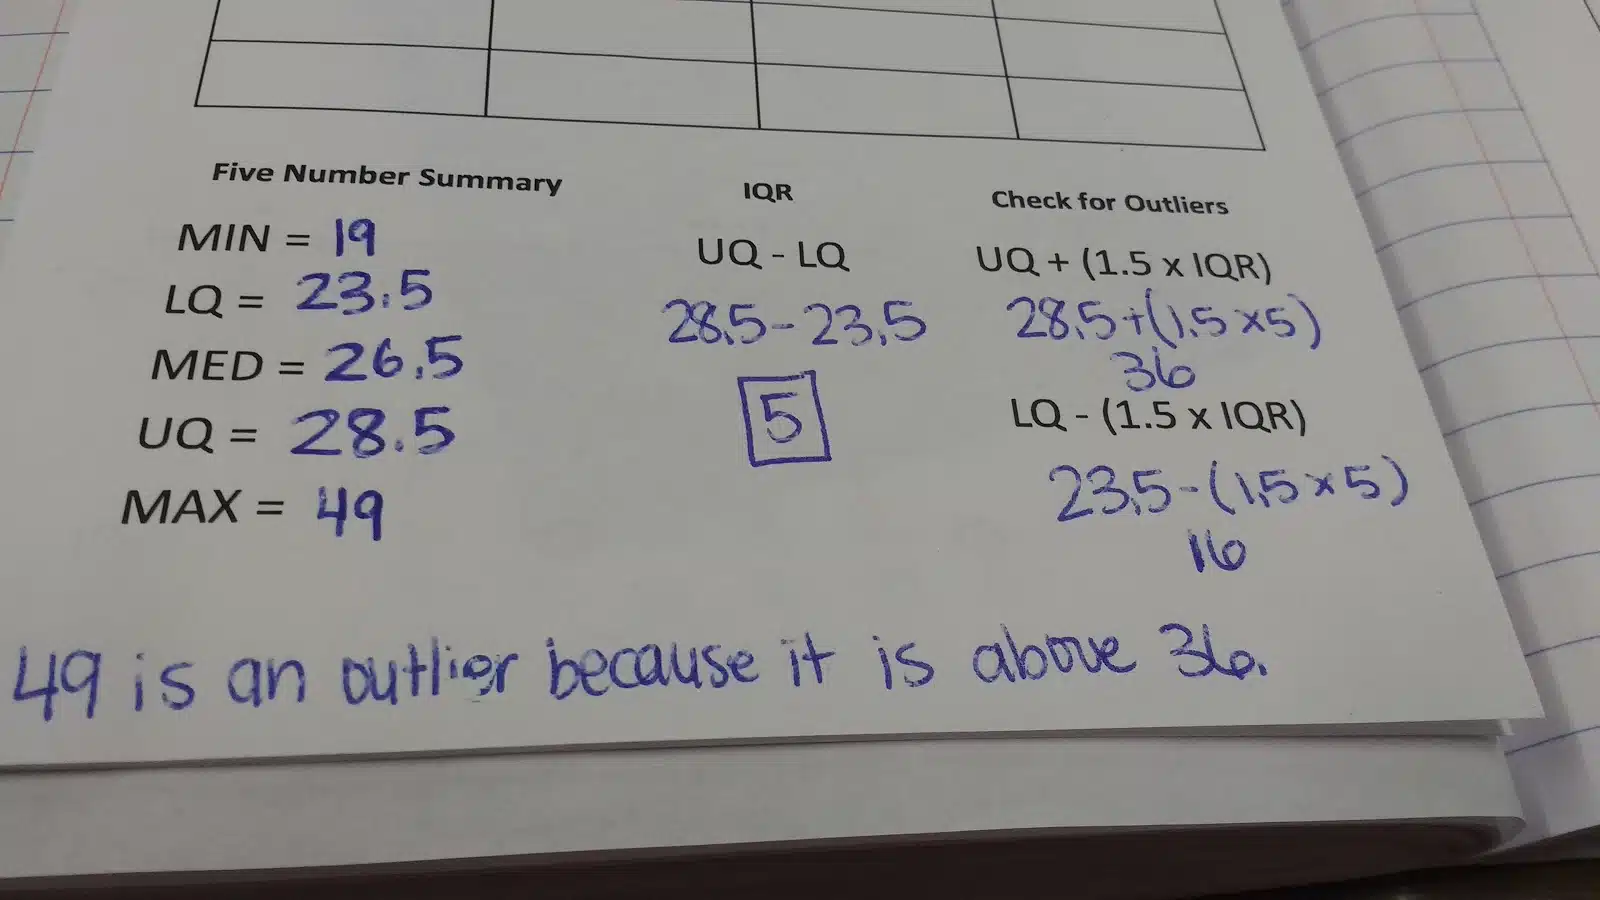 Five Number Summary
MIN = 19
LQ = 23.5
MED = 26.5
UQ = 28.5
MAX = 49
IQR
UQ - LQ
28.5 - 23.5
5
Check for Outliers
UQ + (1.5 x IQR)
28.5 + (1.5 x 5)
36
LQ - (1.5 x IQR)
23.5 - (1.5 x 5)
16
49 is an outlier because it is above 36.